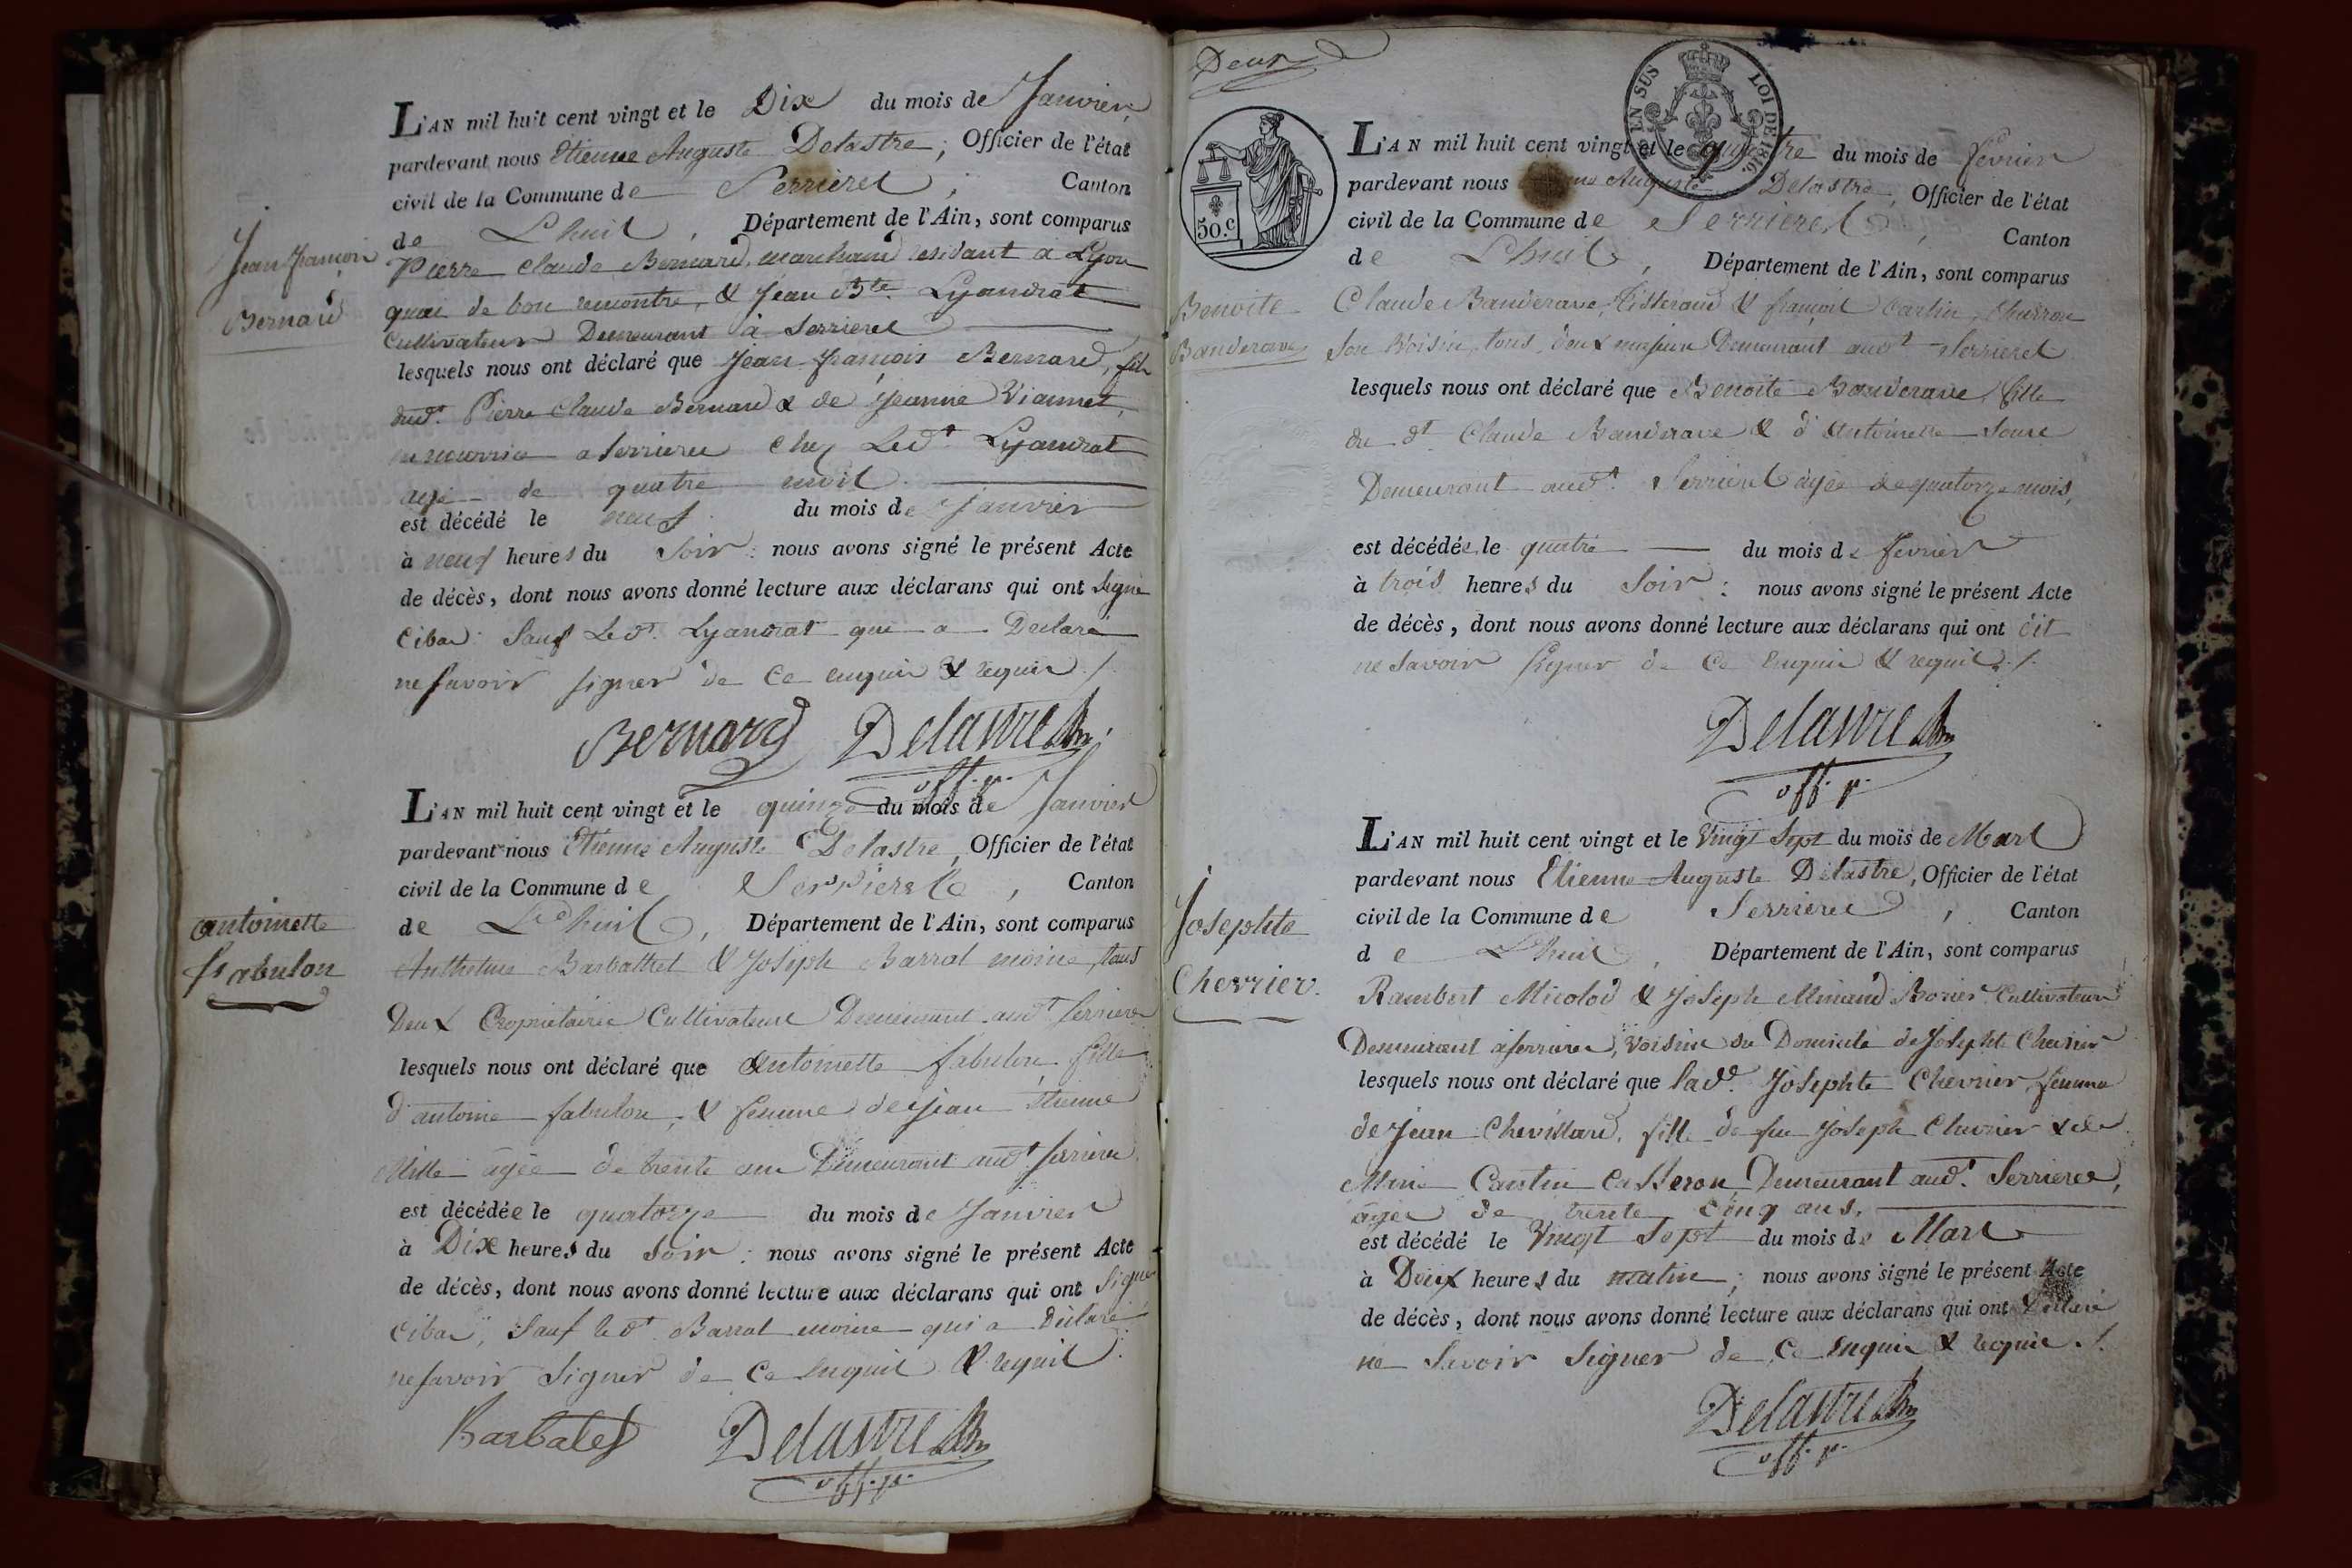 Jean françois
Bernard
L'AN mil huit cent vingt et le Dix du mois de Janvier,
pardevant nous Etienne Auguste Delastre, Officier de l'état
civil de la Commune de Serrieres, Canton
de Lhuis, Département de l'Ain, sont comparus
Pierre Claude Bernard, marchand residant a Lyon
quai de bon rencontre, & Jean Bte. Lyandrat
Cultivateur Demeurant à Serrieres
lesquels nous ont déclaré que Jean françois Bernard, fils
dudt. Pierre Claude Bernard & de Jeanne Viannet,
en nourrice a Serrieres chez Ledt. Lyandrat
agé de quatre mois
est décédé le neuf du mois de Janvier
à neuf heures du Soir : nous avons signé le présent Acte
de décès, dont nous avons donné lecture aux déclarans qui ont Signé
Cibas Sauf Ledt. Lyandrat qui a Declaré
ne savoir signer de ce enquis & requis ./.
Bernard Delastre
off. p.
antoinette
fabulon
L'AN mil huit cent vingt et le quinze du mois de Janvier
pardevant nous Etienne Auguste Delastre, Officier de l'état
civil de la Commune de Serrieres, Canton
de Lhuis, Département de l'Ain, sont comparus
Anthelme Barbattet & Joseph Barral moine, tous
Deux Propriétaires Cultivateurs Demeurant audt Serrieres
lesquels nous ont déclaré que Antoinette fabulon, fille
d'antoine fabulon, & femme de Jean Etienne
Mille agée de trente ans Demeurant audt Serrieres
est décédée le quatorze du mois de Janvier
à Dix heures du Soir : nous avons signé le présent Acte
de décès, dont nous avons donné lecture aux déclarans qui ont Signé
Cibas, Sauf le dt. Barral moine qui a Déclaré
ne savoir Signer de Ce Enquis & requis
Barbatet Delastre
off. p.
Deux
EN SUS LOI DE 1816
50.c
Benoite
Banderave
L'AN mil huit cent vingt et le quatre du mois de fevrier
pardevant nous Auguste Delastre, Officier de l'état
civil de la Commune de Serrieres, Canton
de Lhuis, Département de l'Ain, sont comparus
Claude Banderave, Tisserand & françois Cartin, Charron
Son Voisin, tous deux majeurs Demeurant audt Serrieres
lesquels nous ont déclaré que Benoite Banderave, fille
du dt Claude Banderave & d'Antoinette
Demeurant audt. Serrieres agée de quatorze mois,
est décédée le quatre du mois de fevrier
à trois heures du Soir : nous avons signé le présent Acte
de décès, dont nous avons donné lecture aux déclarans qui ont dit
ne Savoir Signer de Ce Enquis & requis ./.
Delastre
off. p.
Josephte
Chevrier.
L'AN mil huit cent vingt et le Vingt Sept du mois de Mars
pardevant nous Etienne Auguste Delastre, Officier de l'état
civil de la Commune de Serrieres, Canton
de Lhuis, Département de l'Ain, sont comparus
Rambert Micolod & Joseph Minand Borier Cultivateurs
Demeurant a Serrieres, Voisins du Domicile de Josephte Chevrier
lesquels nous ont déclaré que ladte. Josephte Chevrier, femme
de Jean Chevillard, fille de feu Joseph Chevrier & de
Marie Cantin Casseron, Demeurant audt. Serrieres,
agée de trente cinq ans,
est décédé le Vingt Sept du mois de Mars
à Deux heures du matin ; nous avons signé le présent Acte
de décès, dont nous avons donné lecture aux déclarans qui ont Déclaré
ne Savoir Signer de Ce Enquis & requis ./.
Delastre
off. p.